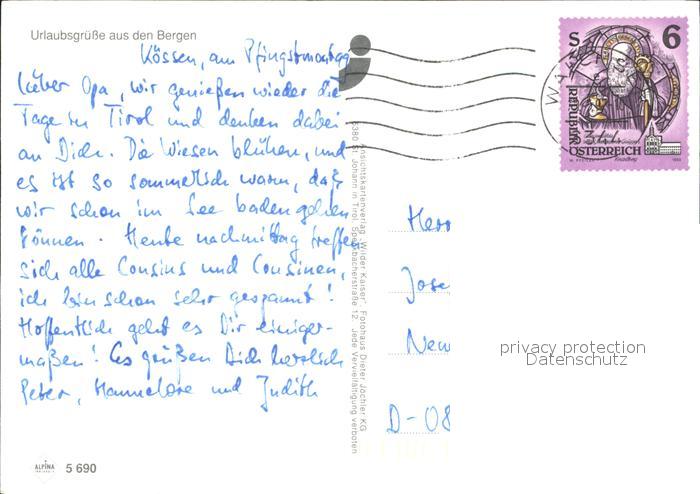 Urlaubsgrüße aus den Bergen
Kössen, am Pfingstmontag
Lieber Opa, wir genießen wieder die
Tage in Tirol und denken dabei
an Dich. Die Wiesen blühen, und
es ist so sommerlich warm, daß
wir schon im See baden gehen
können. Heute nachmittag treffen
sich alle Cousins und Cousinen,
ich bin schon sehr gespannt!
Hoffentlich geht es Dir einiger-
maßen! Es grüßen Dich herzlich
Peter, Hannelore und Judith
ALPINA
5 690
Ansichtskartenverlag "Wilder Kaiser", Fotohaus Dieter Jöchler KG
6380 St. Johann in Tirol, Speckbacherstraße 12. Jede Vervielfältigung verboten
6
REPUBLIK
ÖSTERREICH
Herr
Jose
Neu
D-08
privacy protection
Datenschutz